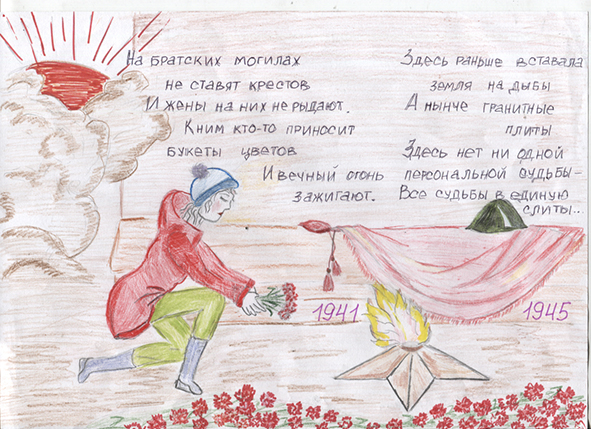 На братских могилах
не ставят крестов
И жены на них не рыдают.
Кним кто-то приносит
букеты цветов
И вечный огонь
зажигают.
Здесь раньше вставала
земля на дыбы
А нынче гранитные
плиты
Здесь нет ни одной
персональной судьбы-
Все судьбы в единую
слиты...
1941 1945